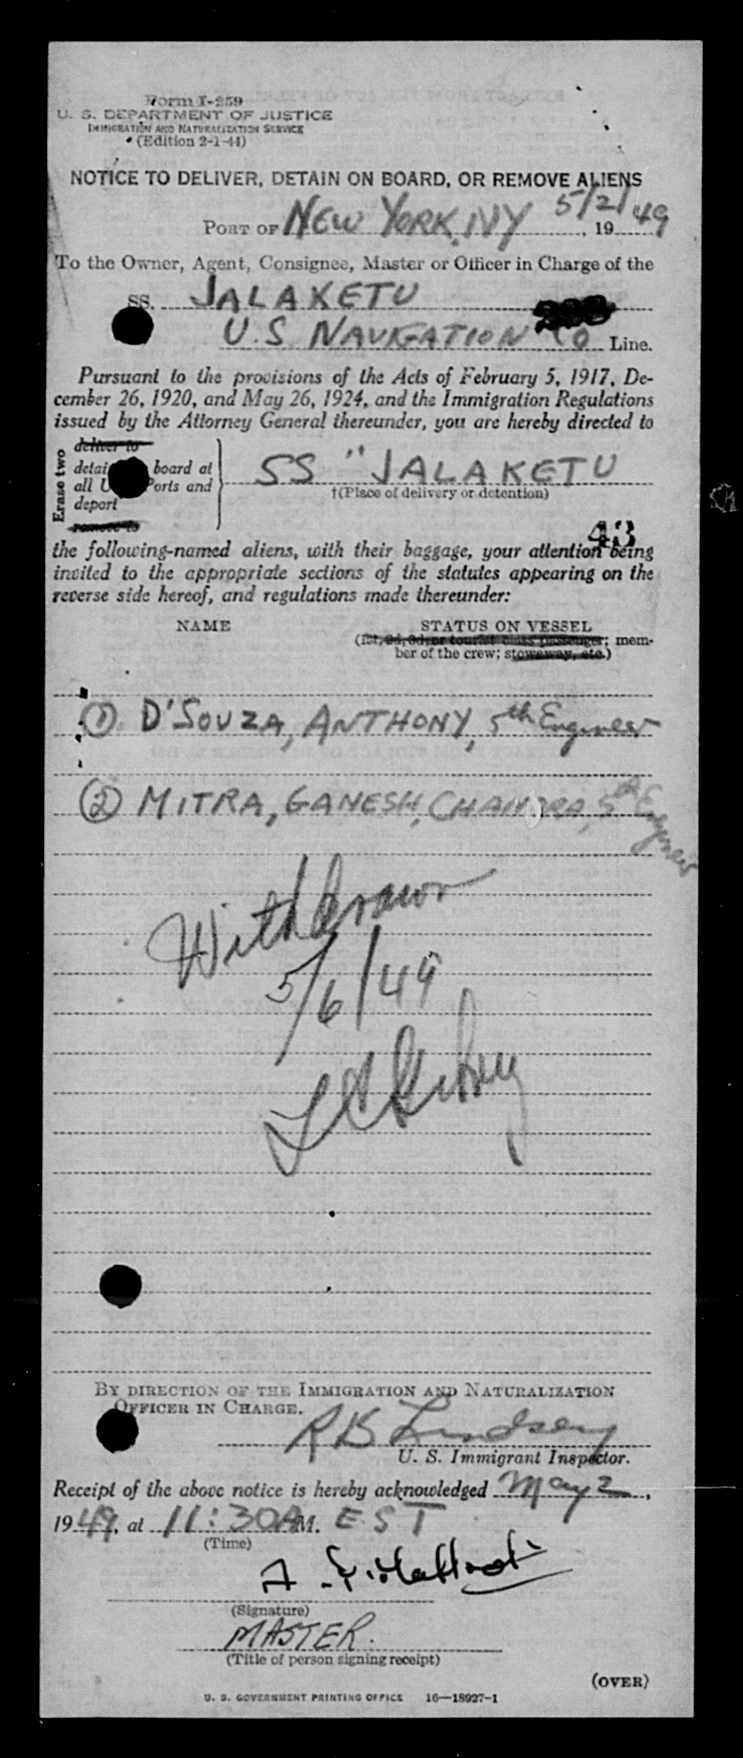 Form I-259
U. S. DEPARTMENT OF JUSTICE
IMMIGRATION AND NATURALIZATION SERVICE
(Edition 2-1-44)
NOTICE TO DELIVER, DETAIN ON BOARD, OR REMOVE ALIENS
PORT OF NEW YORK, NY 5/2/, 1949
To the Owner, Agent, Consignee, Master or Officer in Charge of the
SS. JALAKETU
U.S NAVIGATION CO Line.
Pursuant to the provisions of the Acts of February 5, 1917, De-
cember 26, 1920, and May 26, 1924, and the Immigration Regulations
issued by the Attorney General thereunder, you are hereby directed to
Erase two
deliver to
detai board at
all U orts and
deport
remove to
SS "JALAKETU
†(Place of delivery or detention)
43
the following-named aliens, with their baggage, your attention being
invited to the appropriate sections of the statutes appearing on the
reverse side hereof, and regulations made thereunder:
NAME STATUS ON VESSEL
(1st, 2d, 3d, or tourist class passenger; mem-
ber of the crew; stowaway, etc.)
① D'SOUZA, ANTHONY, 5th Engineer
② MITRA, GANESH, CHANDRA, 5th Engineer
Withdrawn
5/6/49
BY DIRECTION OF THE IMMIGRATION AND NATURALIZATION
OFFICER IN CHARGE.
RB Lindsey
U. S. Immigrant Inspector.
Receipt of the above notice is hereby acknowledged May 2,
1949, at 11:30 AM. EST
(Time)
(Signature)
MASTER.
(Title of person signing receipt)
(OVER)
U. S. GOVERNMENT PRINTING OFFICE 16—18927-1